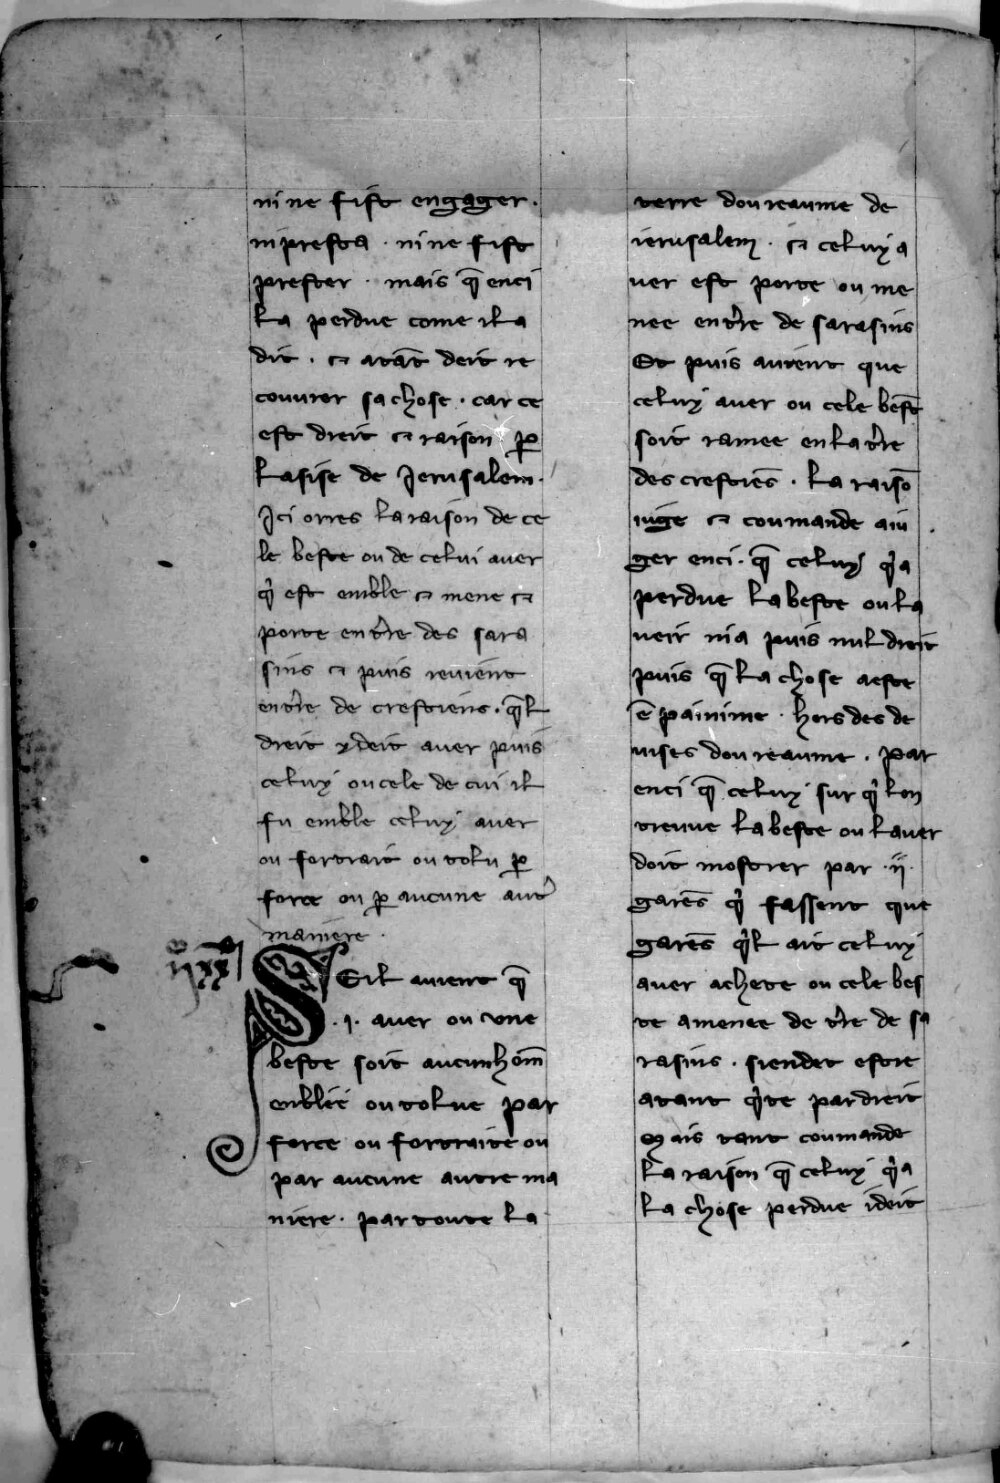 ni ne fist engager.
ni presta. ni ne fist
prester. mais q̄ enci
la perdue come il a
dit. ⁊ atāt deit re
couurer sa chose. car ce
est dreit ⁊ raison ꝑ
lasise de Jerusalem.
Ici orres la raison de ce
le beste ou de celui auer
qͥ est emble ⁊ mene ⁊
porte en tr̄e des sara
sins ⁊ puis reuient
en tr̄e de crestiens. q̄l
dreit y deit auer puis
celuy ou cele de cui il
fu emble celuy auer
ou fortrait ou tolu ꝑ
force ou ꝑ aucune aut̾
maniere.
SEil auient q̄
.i. auer ou vne
beste soit aucun hom̄
enblee ou tolue par
force ou fortraite ou
par aucune autre ma
niere. par toute la
terre dou reaume de
ierusalem. ⁊ celuy a
uer est porte ou me
nee en tr̄e de sarasins
Et puis auient que
celuy auer ou cele best̄
soit ramee en la tr̄e
des crestiēs. la raisō
iuge ⁊ coumande a iu
ger enci. q̄ celuy qͥ a
perdue la beste ou la
ueir ni a puis nul dreit
puis q̄ la chose a este
ē painime. hors des de
uises dou reaume. par
enci q̄ celuy sur qͥ lon
treuue la beste ou lauer
doit mostrer par .ij.
garēs qͥ fassent que
garēs qͥl ait celuy
auer achete ou cele bes
te amenee de tr̄e de sa
rasins. si en det estre
atant qͥte par dreit
Mais tant coumande
la raison q̄ celuy qͥ a
la chose perdue i deit